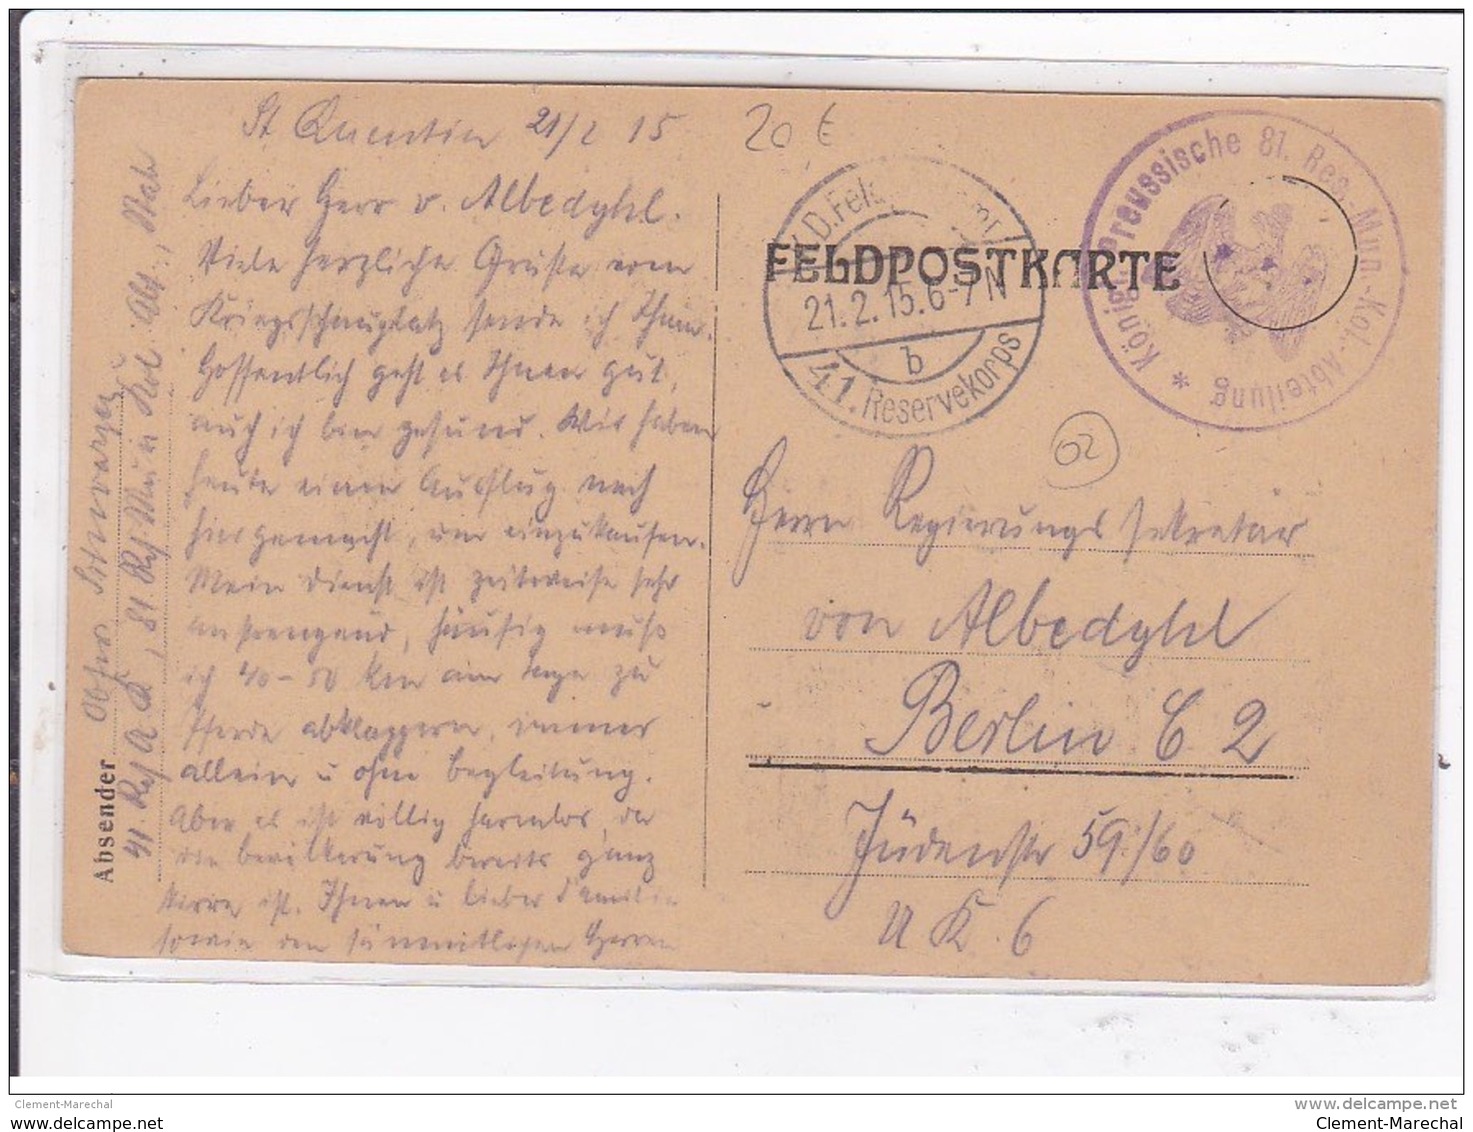 St Quentin 21/2 15
20 €
Lieber Herr v. Albedyhl.
Viele herzliche Grüße vom
Kriegsschauplatz sende ich Ihnen.
Hoffentlich geht es Ihnen gut,
auch ich bin gesund. Wir haben
heute einen Ausflug nach
hier gemacht, um einzukaufen.
Mein Dienst ist zeitweise sehr
anstrengend, häufig muß
ich 40-50 km am Tage zu
Pferde abklappern, immer
allein u ohne Begleitung.
Aber es ist völlig harmlos, da
die Bevölkerung bereits ganz
kirre ist. Ihnen u lieber Familie
sowie den sämmtlichen Herren
Absender
81. Res. Mun Kol. Abt.,
41. Res. A. K.
FELDPOSTKARTE
K.D.Feld
21.2.15.6-7N
b
41. Reservekorps
Königl. Preussische 81. Res.-Mun.-Kol.-Abteilung *
02
Herrn Regierungssekretär
von Albedyhl
Berlin C 2
Jüdenstr 59/60
U K. 6
Clement-Marechal
delcampe.net
www.delcampe.net
Clement-Marechal